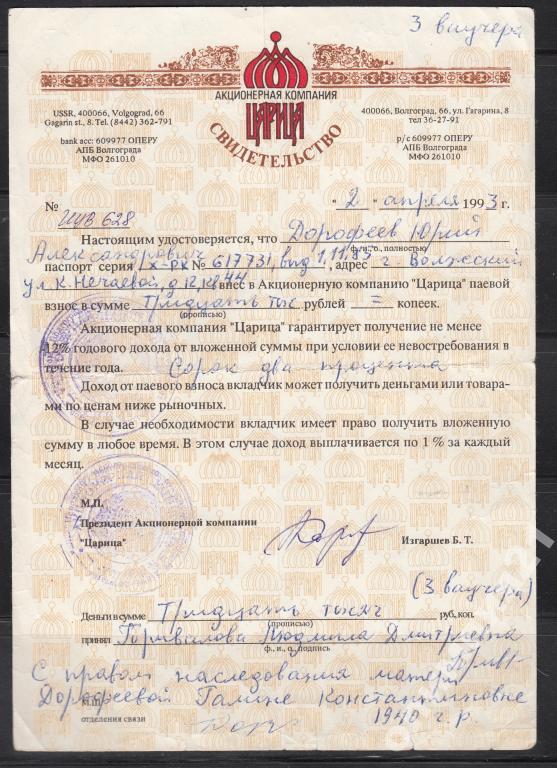 3 ваучера
АКЦИОНЕРНАЯ КОМПАНИЯ
ЦАРИЦА
СВИДЕТЕЛЬСТВО
USSR, 400066, Volgograd, 66
Gagarin st., 8. Tel. (8442) 362-791
bank acc: 609977 ОПЕРУ
АПБ Волгограда
МФО 261010
400066, Волгоград, 66, ул. Гагарина, 8
тел 36-27-91
р/с 609977 ОПЕРУ
АПБ Волгограда
МФО 261010
" 2 " апреля 1993 г.
№ 628
Настоящим удостоверяется, что Дорофеев Юрий
ф., и., о., полностью
Александрович
паспорт серия IX-РК № 617731, выд 1,11,83, адрес г. Волжский
ул К. Нечаевой, д 12 кв 44 внес в Акционерную компанию "Царица" паевой
взнос в сумме Тридцать тыс рублей = копеек.
(прописью)
Акционерная компания "Царица" гарантирует получение не менее
12% годового дохода от вложенной суммы при условии ее невостребования в
течение года. Сорок два процента
Доход от паевого взноса вкладчик может получить деньгами или товара-
ми по ценам ниже рыночных.
В случае необходимости вкладчик имеет право получить вложенную
сумму в любое время. В этом случае доход выплачивается по 1 % за каждый
месяц.
М.П.
Президент Акционерной компании
"Царица"
Изгаршев Б. Т.
(3 ваучера)
Деньги в сумме Тридцать тысяч руб, коп.
(прописью)
принял Людмила Дмитриевна
ф., и., о., подпись
С правом наследования матери
Дорофеевой Галине Константиновне
М.П.
отделения связи
1940 г. р.